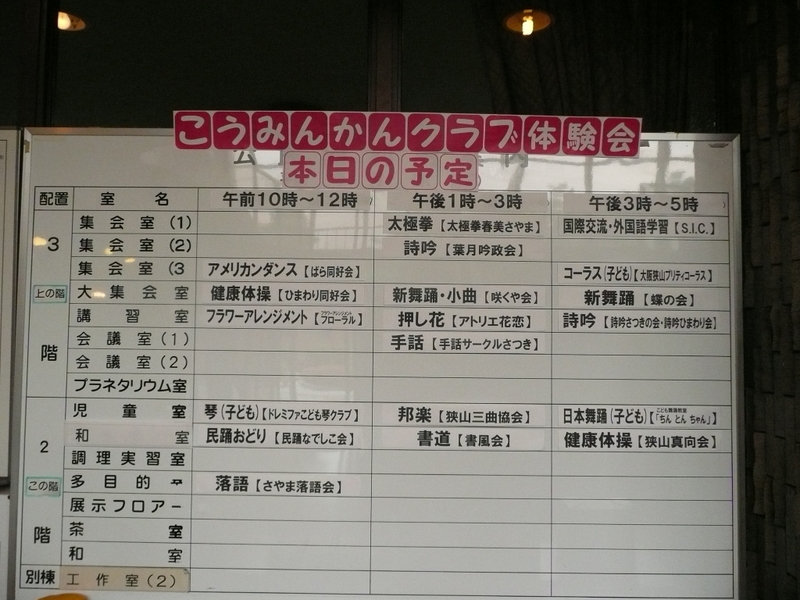 こうみんかんクラブ体験会
本日の予定
配置 室名 午前10時～12時 午後1時～3時 午後3時～5時
3 集会室(1) 太極拳【太極拳春美さやま】 国際交流・外国語学習【S.I.C.】
集会室(2) 詩吟【葉月吟政会】
集会室(3 アメリカンダンス【ばら同好会】 コーラス(子ども)【大阪狭山プリティコーラス】
上の階 大集会室 健康体操【ひまわり同好会】 新舞踊・小曲【咲くや会】 新舞踊【蝶の会】
講習室 フラワーアレンジメント【フラワーアレンジメントフローラル】 押し花【アトリエ花恋】 詩吟【詩吟さつきの会・詩吟ひまわり会】
階 会議室(1) 手話【手話サークルさつき】
会議室(2)
プラネタリウム室
児童室 琴(子ども)【ドレミファこども琴クラブ】 邦楽【狭山三曲協会】 日本舞踊(子ども)【こども舞踊教室「ちん とん ちゃん」】
2 和室 民踊おどり【民踊なでしこ会】 書道【書風会】 健康体操【狭山真向会】
調理実習室
この階 多目的 落語【さやま落語会】
展示フロアー
階 茶室
和室
別棟 工作室(2)